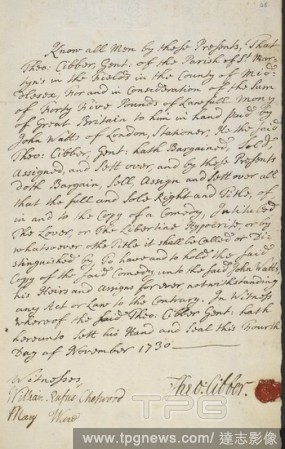 Know all Men by these Presents, That
Theo. Cibber, Gent. of the Parish of St. Mar-
tyn's in the Fields in the County of Mid-
dlesex, For and in Consideration of the Sum
of Forty Five Pounds of Lawfull Mony
of Great Britain to him in hand paid by
John Watts of London, Stationer, He the said
Theo: Cibber, Gent: hath Bargained, Sold,
Assigned, and Sett over, and by these Presents
doth Bargain, Sell, Assign and Sett over all
that the full and Sole Right and Title, of
in and to the Copy of a Comedy, Intituled
The Lover, or The Libertine Hypocrite, or by
whatsoever other Title it shall be Called or Di-
stinguished by To have and to hold the said
Copy of the said Comedy, unto the said John Watts,
his Heirs and Assigns for ever notwithstanding
any Act or Law to the Contrary. In Witness
whereof the said Theo. Cibber Gent: hath
hereunto sett his Hand and Seal this Fourth
Day of November 1730
Witnesses
William Rufus Chetwood
Mary
Theo: Cibber.
TPG
www.tpgnews.com/達志影像